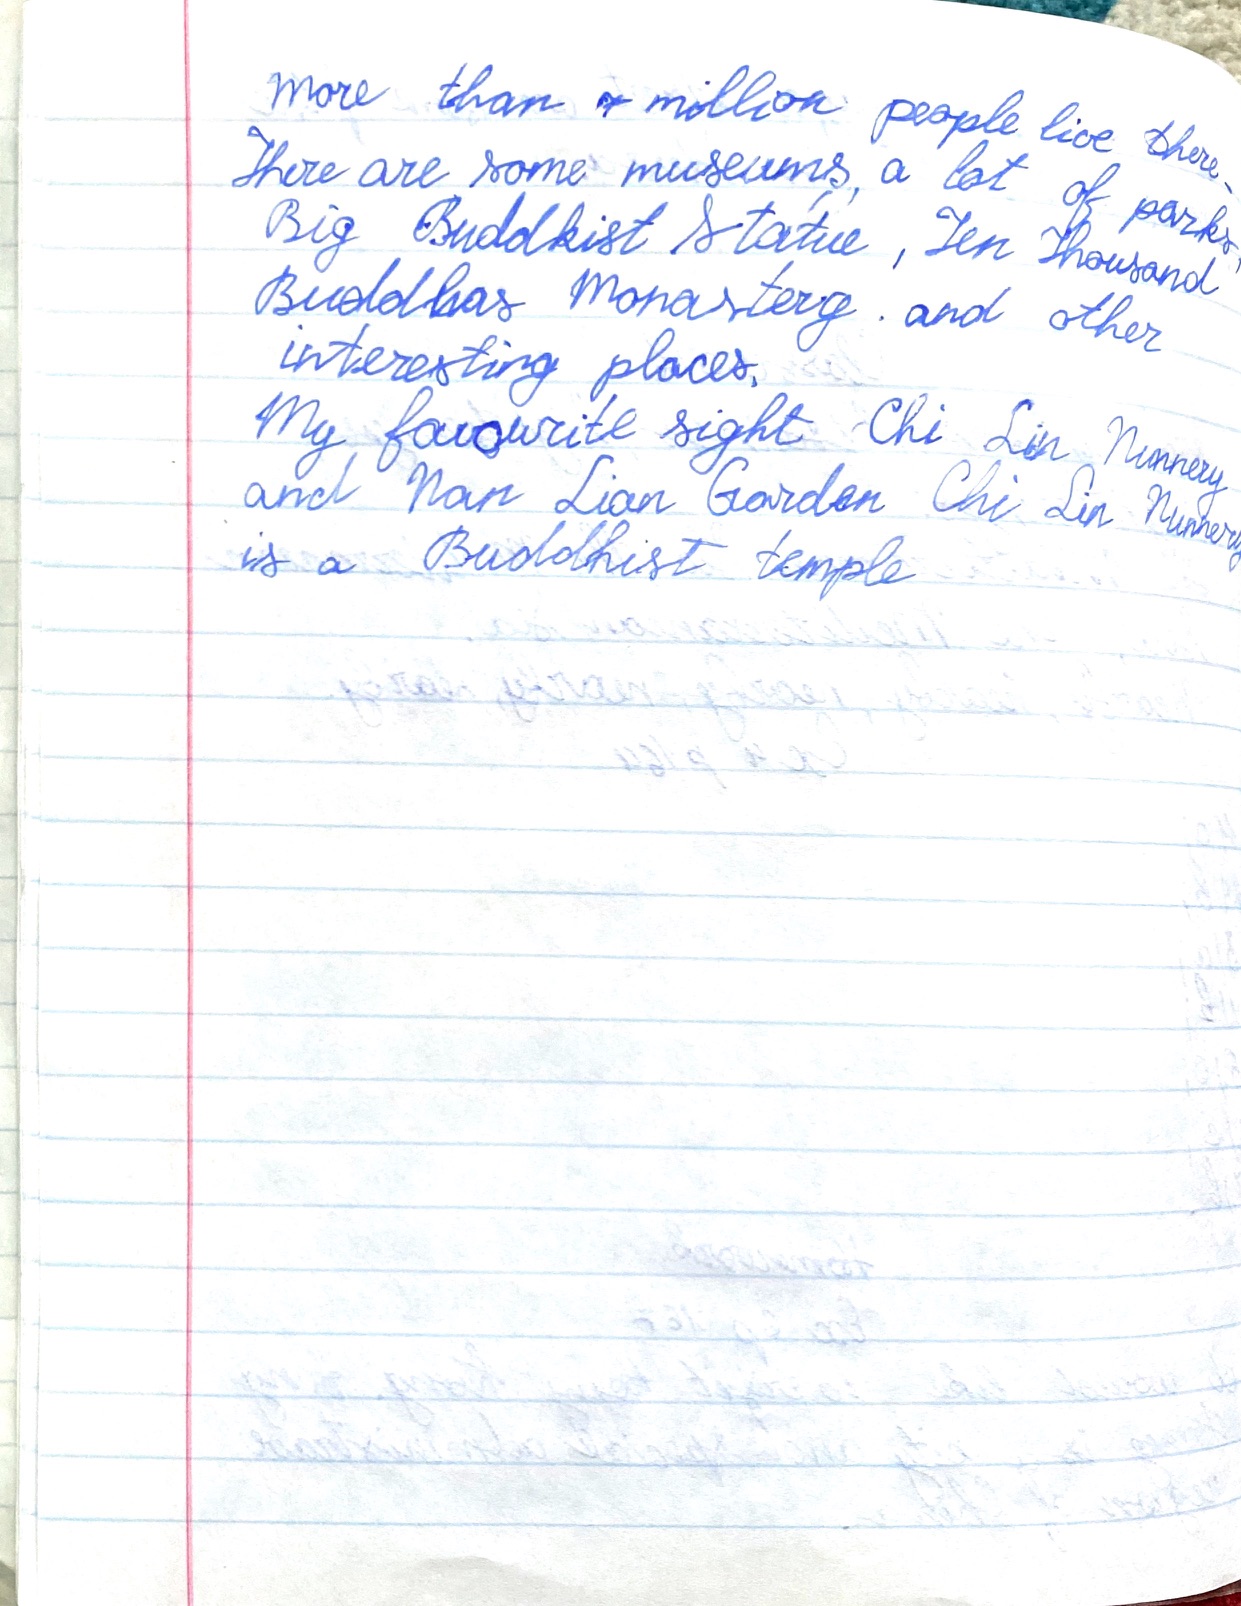 More than 7 million people live there.
There are some museums, a lot of parks,
Big Buddhist Statue, Ten Thousand
Buddhas Monasterg. and other
interesting places.
My favourite sight Chi Lin Nunnery
and Nan Lian Garden Chi Lin Nunnery
is a Buddhist temple